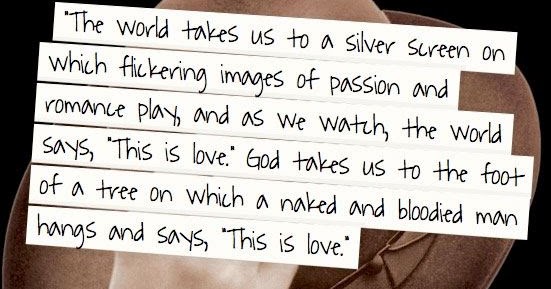 "The world takes us to a silver screen on
which flickering images of passion and
romance play, and as we watch, the world
says, "This is love." God takes us to the foot
of a tree on which a naked and bloodied man
hangs and says, "This is love."